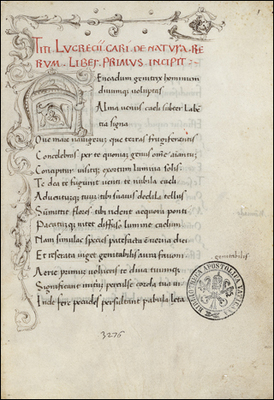 TITI LVCRECII CARI DE NATVRA RE
RVM LIBER PRIMVS INCIPIT
Eneadum genitrix hominum
diuumq uoluptas
Alma uenus caeli subter Labe
tia signa
Que mare nauigerum que terras frugiferentis
Concelebras per te quoniam genus omne animantum
Concipitur uisitq exortum lumina solis
Te dea te fugiunt uenti te nubila caeli
Aduentumq tuum tibi suauis dedala tellus
Summittit flores tibi rident aequora ponti
Pacatumq nitet diffuso lumine caelum
Nam simulac species patefacta est uerna diei
Et reserata uiget genitabilis aura fauoni
genitabilis
Aerie primum uolucris te diua tuumq
Significant initum perculse corda tua ui
Inde fere pecudes persultant pabula leta
BIBLIOTHECA APOSTOLICA VATICANA
3276